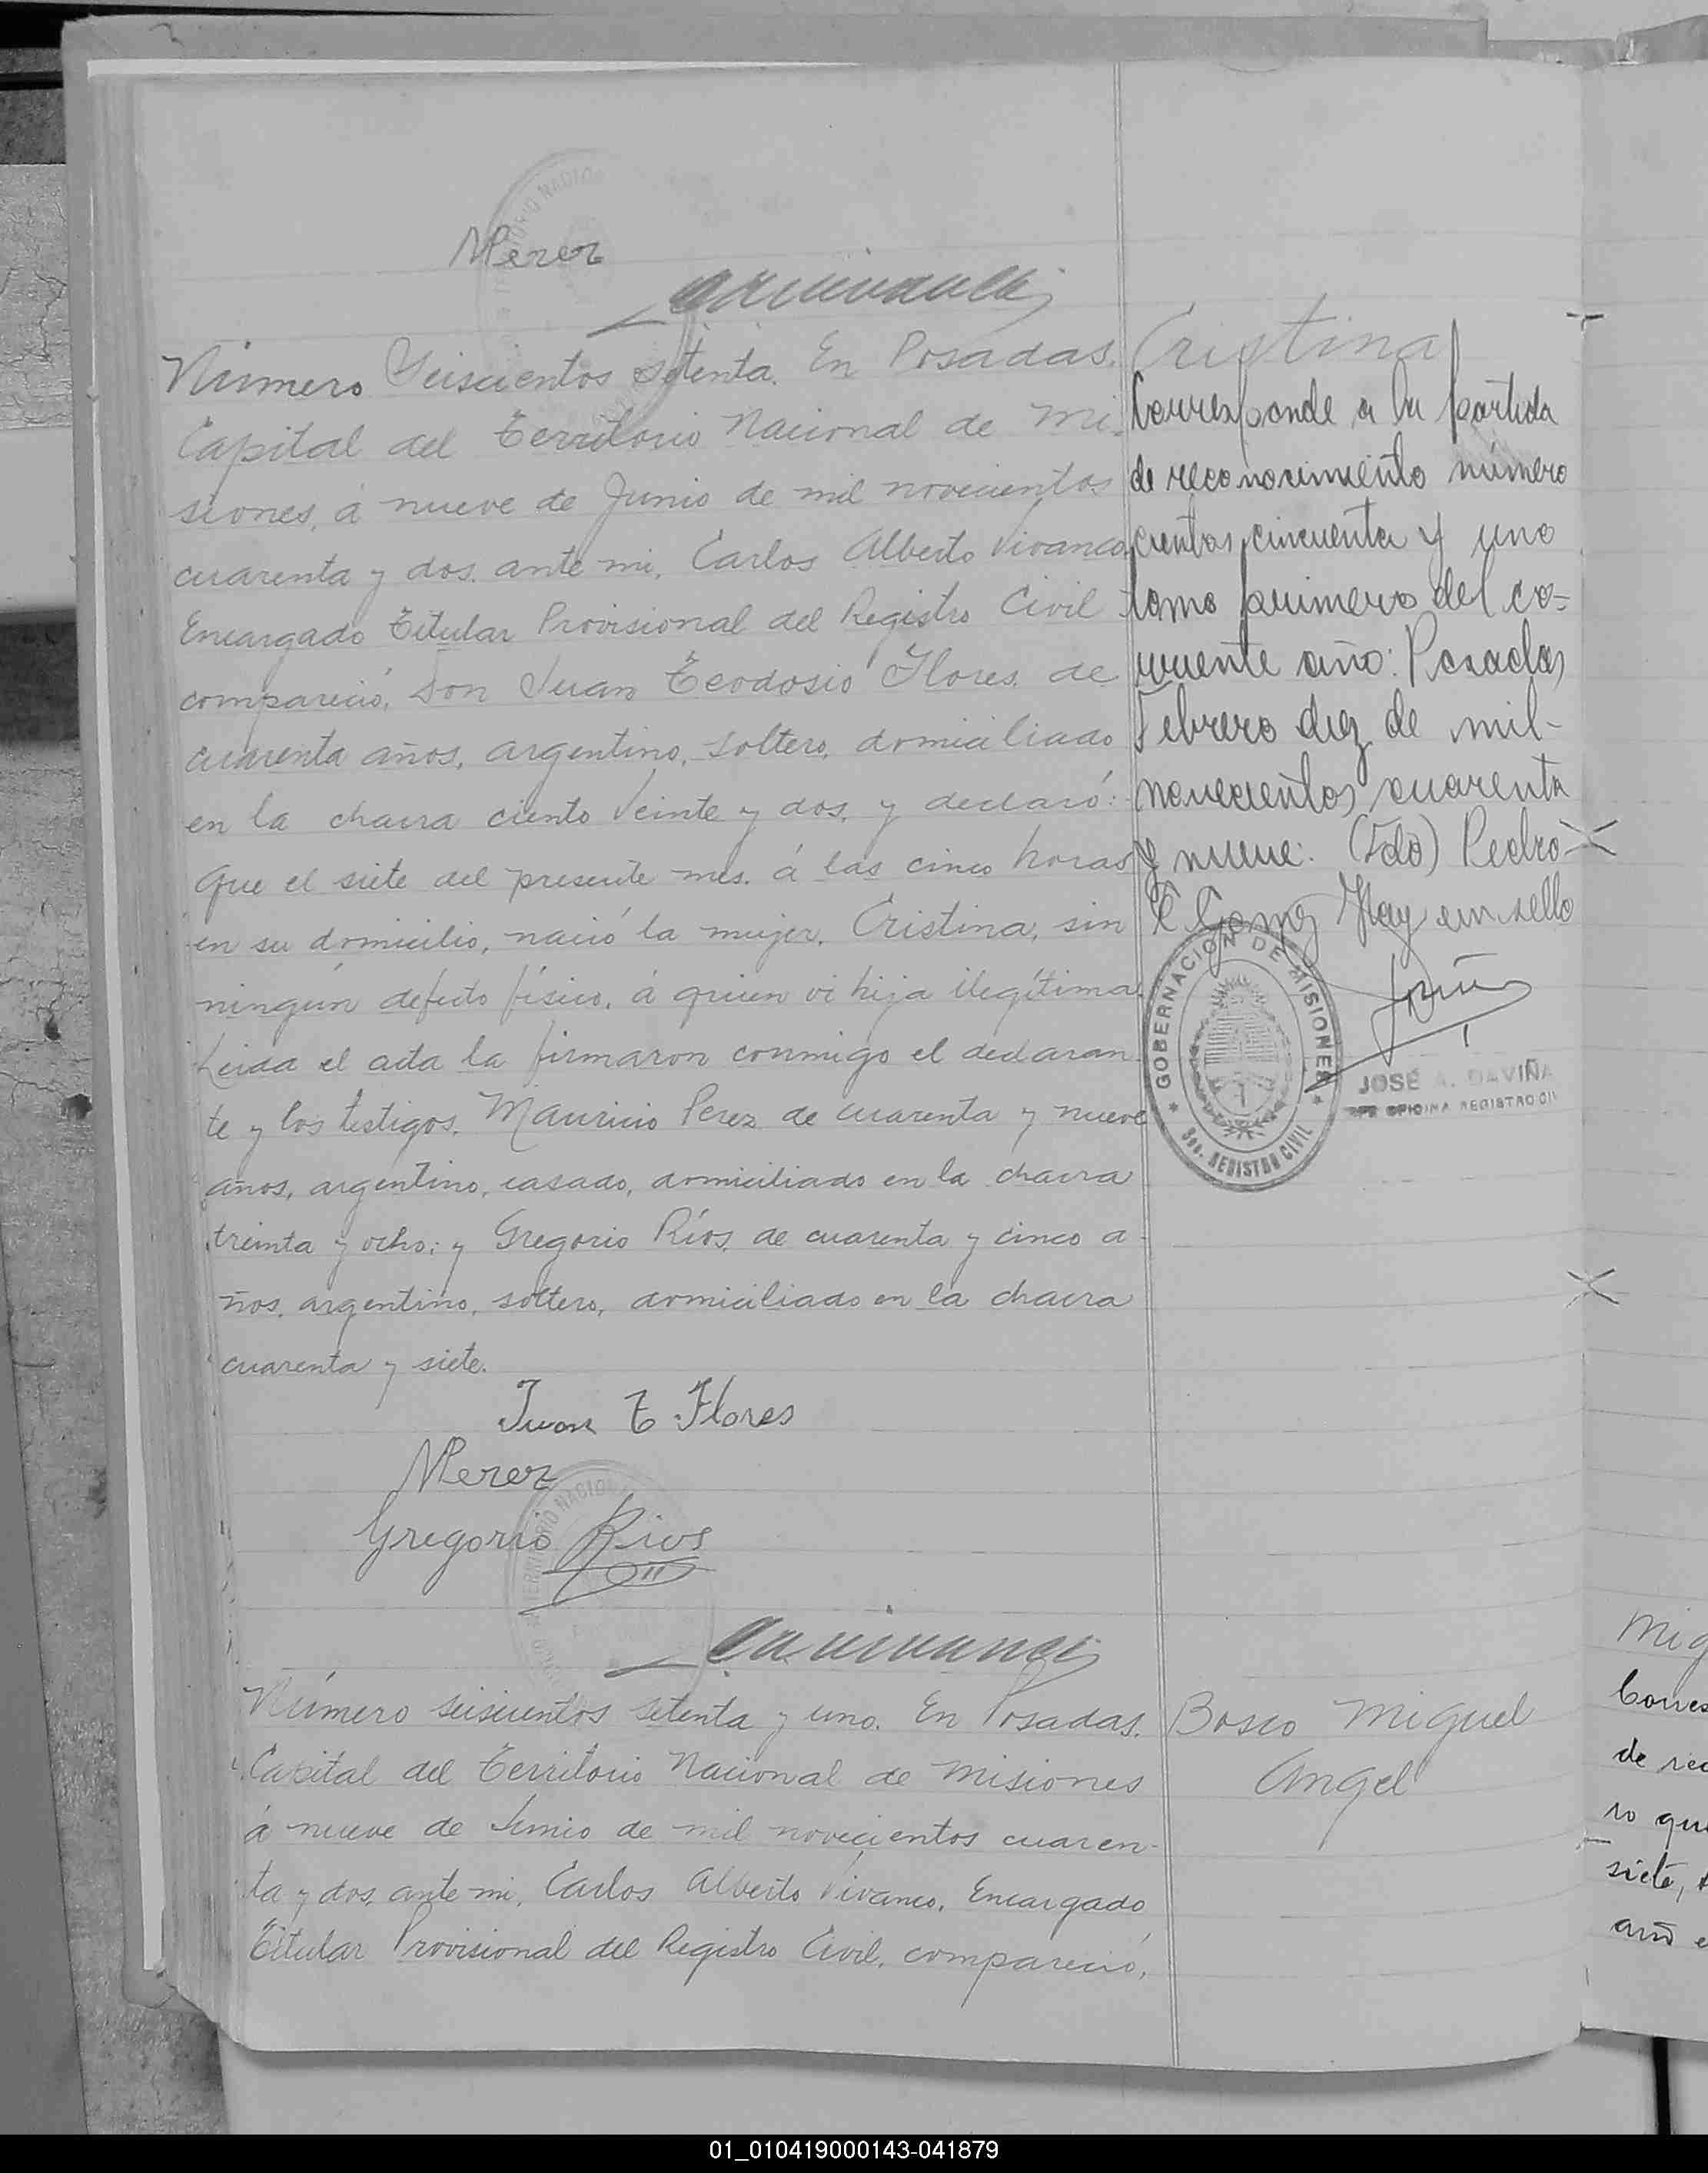 MPerez
Número Seiscientos setenta. En Posadas.
Capital del Territorio Nacional de Mi-
siones, á nueve de Junio de mil novecientos
cuarenta y dos. ante mi, Carlos Alberto Vivanco,
Encargado Titular Provisional del Registro Civil
compareció, Don Juan Teodosio Flores, de
cuarenta años, argentino, soltero, domiciliado
en la chacra ciento veinte y dos, y declaró:
Que el siete del presente mes. á las cinco horas
en su domicilio, nació la mujer, Cristina, sin
ningún defecto físico, á quien vi hija ilegítima.
Leida el acta la firmaron conmigo el declaran-
te y los testigos. Mauricio Perez de cuarenta y nueve
años, argentino, casado, domiciliado en la chacra
treinta y ocho; y Gregorio Ríos, de cuarenta y cinco a-
ños, argentino, soltero, domiciliado en la chacra
cuarenta y siete.
Juan T Flores
MPerez
Gregorio Rios
Cristina
Corresponde a la partida
de reconocimiento número
cientos cincuenta y uno
tomo primero del co-
rriente año: Posadas,
Febrero diez de mil-
novecientos cuarenta
y nueve: (Fdo) Pedro
Gomez Hay un sello
GOBERNACION DE MISIONES
Sec. REGISTRO CIVIL
JOSE A. DAVIÑA
JEFE OFICINA REGISTRO CIVIL
Número seiscientos setenta y uno. En Posadas.
Capital del Territorio Nacional de Misiones
á nueve de Junio de mil novecientos cuaren-
ta y dos, ante mi, Carlos Alberto Vivanco, Encargado
Titular Provisional del Registro Civil, compareció,
Bosco Miguel
Angel
Mig
Corres
de rec
ro qui
siete,
año e
01_010419000143-041879